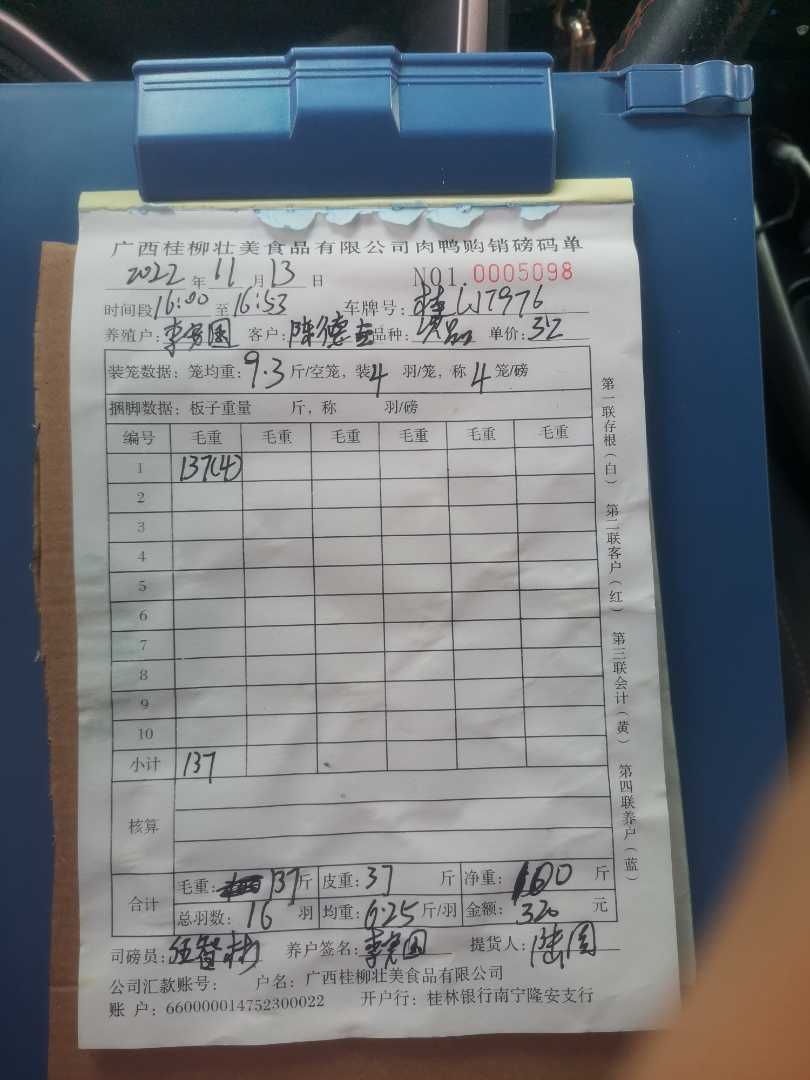 广西桂柳壮美食品有限公司肉鸭购销磅码单
2022年11月13日 NO1.0005098
时间段16:00至16:53 车牌号:桂W7976
养殖户: 客户:陈德 品种: 单价:32
装笼数据:笼均重:9.3斤/空笼,装4羽/笼,称4笼/磅
捆脚数据:板子重量 斤,称 羽/磅
编号 毛重 毛重 毛重 毛重 毛重 毛重
1 137(4)
2
3
4
5
6
7
8
9
10
小计 137
核算
合计 毛重:137斤 皮重:37斤 净重:100斤
总羽数:16羽 均重:6.25斤/羽 金额:320元
司磅员: 养户签名: 提货人:
公司汇款账号: 户名:广西桂柳壮美食品有限公司
账 户:660000014752300022 开户行:桂林银行南宁隆安支行
第一联存根(白) 第二联客户(红) 第三联会计(黄) 第四联养户(蓝)